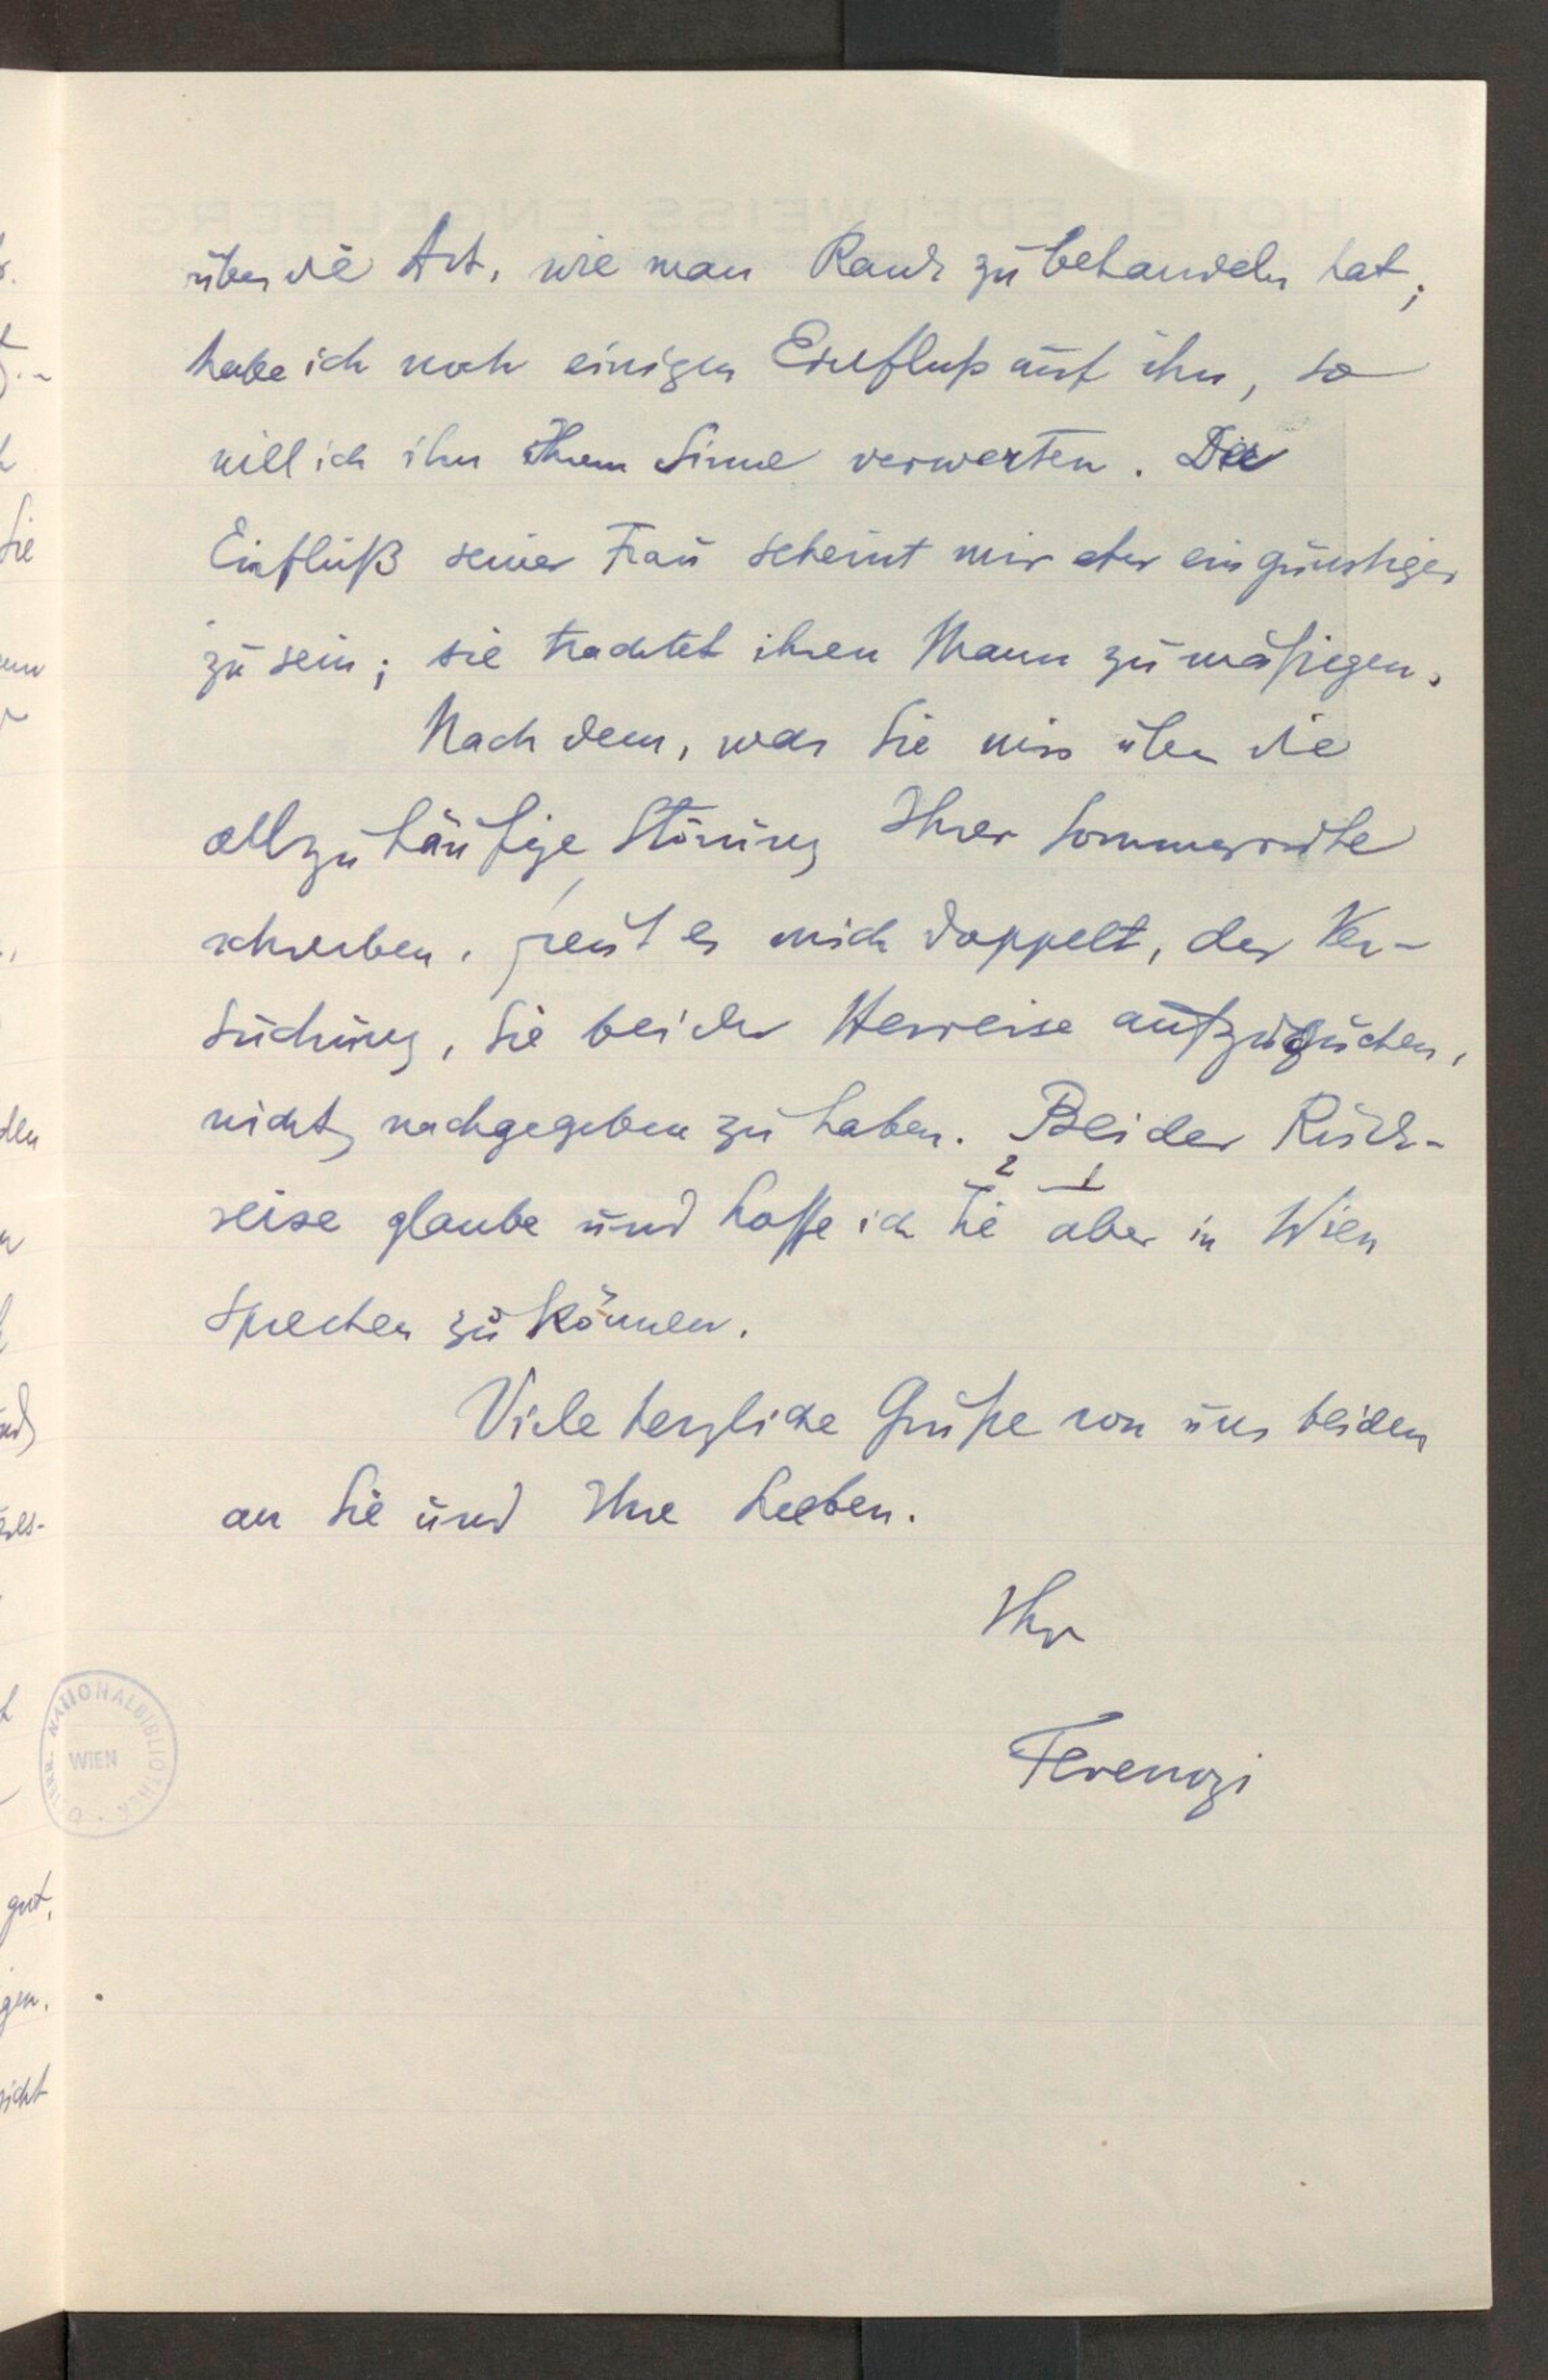 über die Art, wie man Rank zu behandeln hat;
habe ich noch einigen Einfluß auf ihn, so
will ich ihn Ihrem Sinne verwerten. Der
Einfluß seiner Frau scheint mir eher ein günstiger
zu sein; sie trachtet ihren Mann zu mäßigen.
Nach dem, was Sie mir über die
allzu häufige Störung Ihrer Sommerruhe
schreiben, freut es mich doppelt, der Ver-
suchung, Sie bei der Herreise aufzusuchen,
nicht nachgegeben zu haben. Bei der Rück-
2 1
reise glaube und hoffe ich Sie aber in Wien
sprechen zu können.
Viele herzliche Grüße von uns beiden
an Sie und Ihre Lieben.
Ihr
Ferenczi
NATIONALBIBLIOTHEK
WIEN
HOTEL EDELWEISS ENGELBERG
Sie
gut,
gen.
nicht